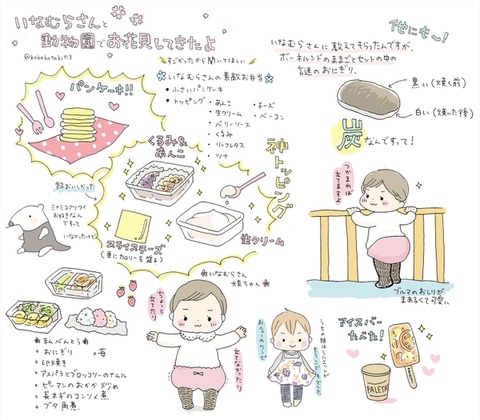 いなむらさんと
動物園でお花見してきたよ
パンケーキ!!
すごかったから聞いてほしい
いなむらさんの素敵お弁当
・小さいパンケーキ
・トッピング・あんこ
・生クリーム
・ベリーソース
・くるみ
・リーフレタス
・ツナ
・チーズ
・ベーコン
くるみ&
あんこ
神トッピング
スライスチーズ
生クリーム
他にもー!
いなむらさんに教えてもらったんですが、
ボーネルンドのままごとセットの中の
のおにぎり、
黒い(焼く前)
白い(焼いた後)
炭なんですって!
つかまれば
立てますよ
ブルマのおしりが
まあるくて可愛い
ミナミコアリクイ
お好きなん
ですって
いなかったけど
おべんとう
・おにぎり
・苺
・卵焼き
・アスパラとブロッコリーのナムル
・ピーマンのおかか炒め
・長ネギのコンソメ煮
・ブタ角煮
いなむらさん
娘ちゃん
アイスバー
たべた!
PALETA